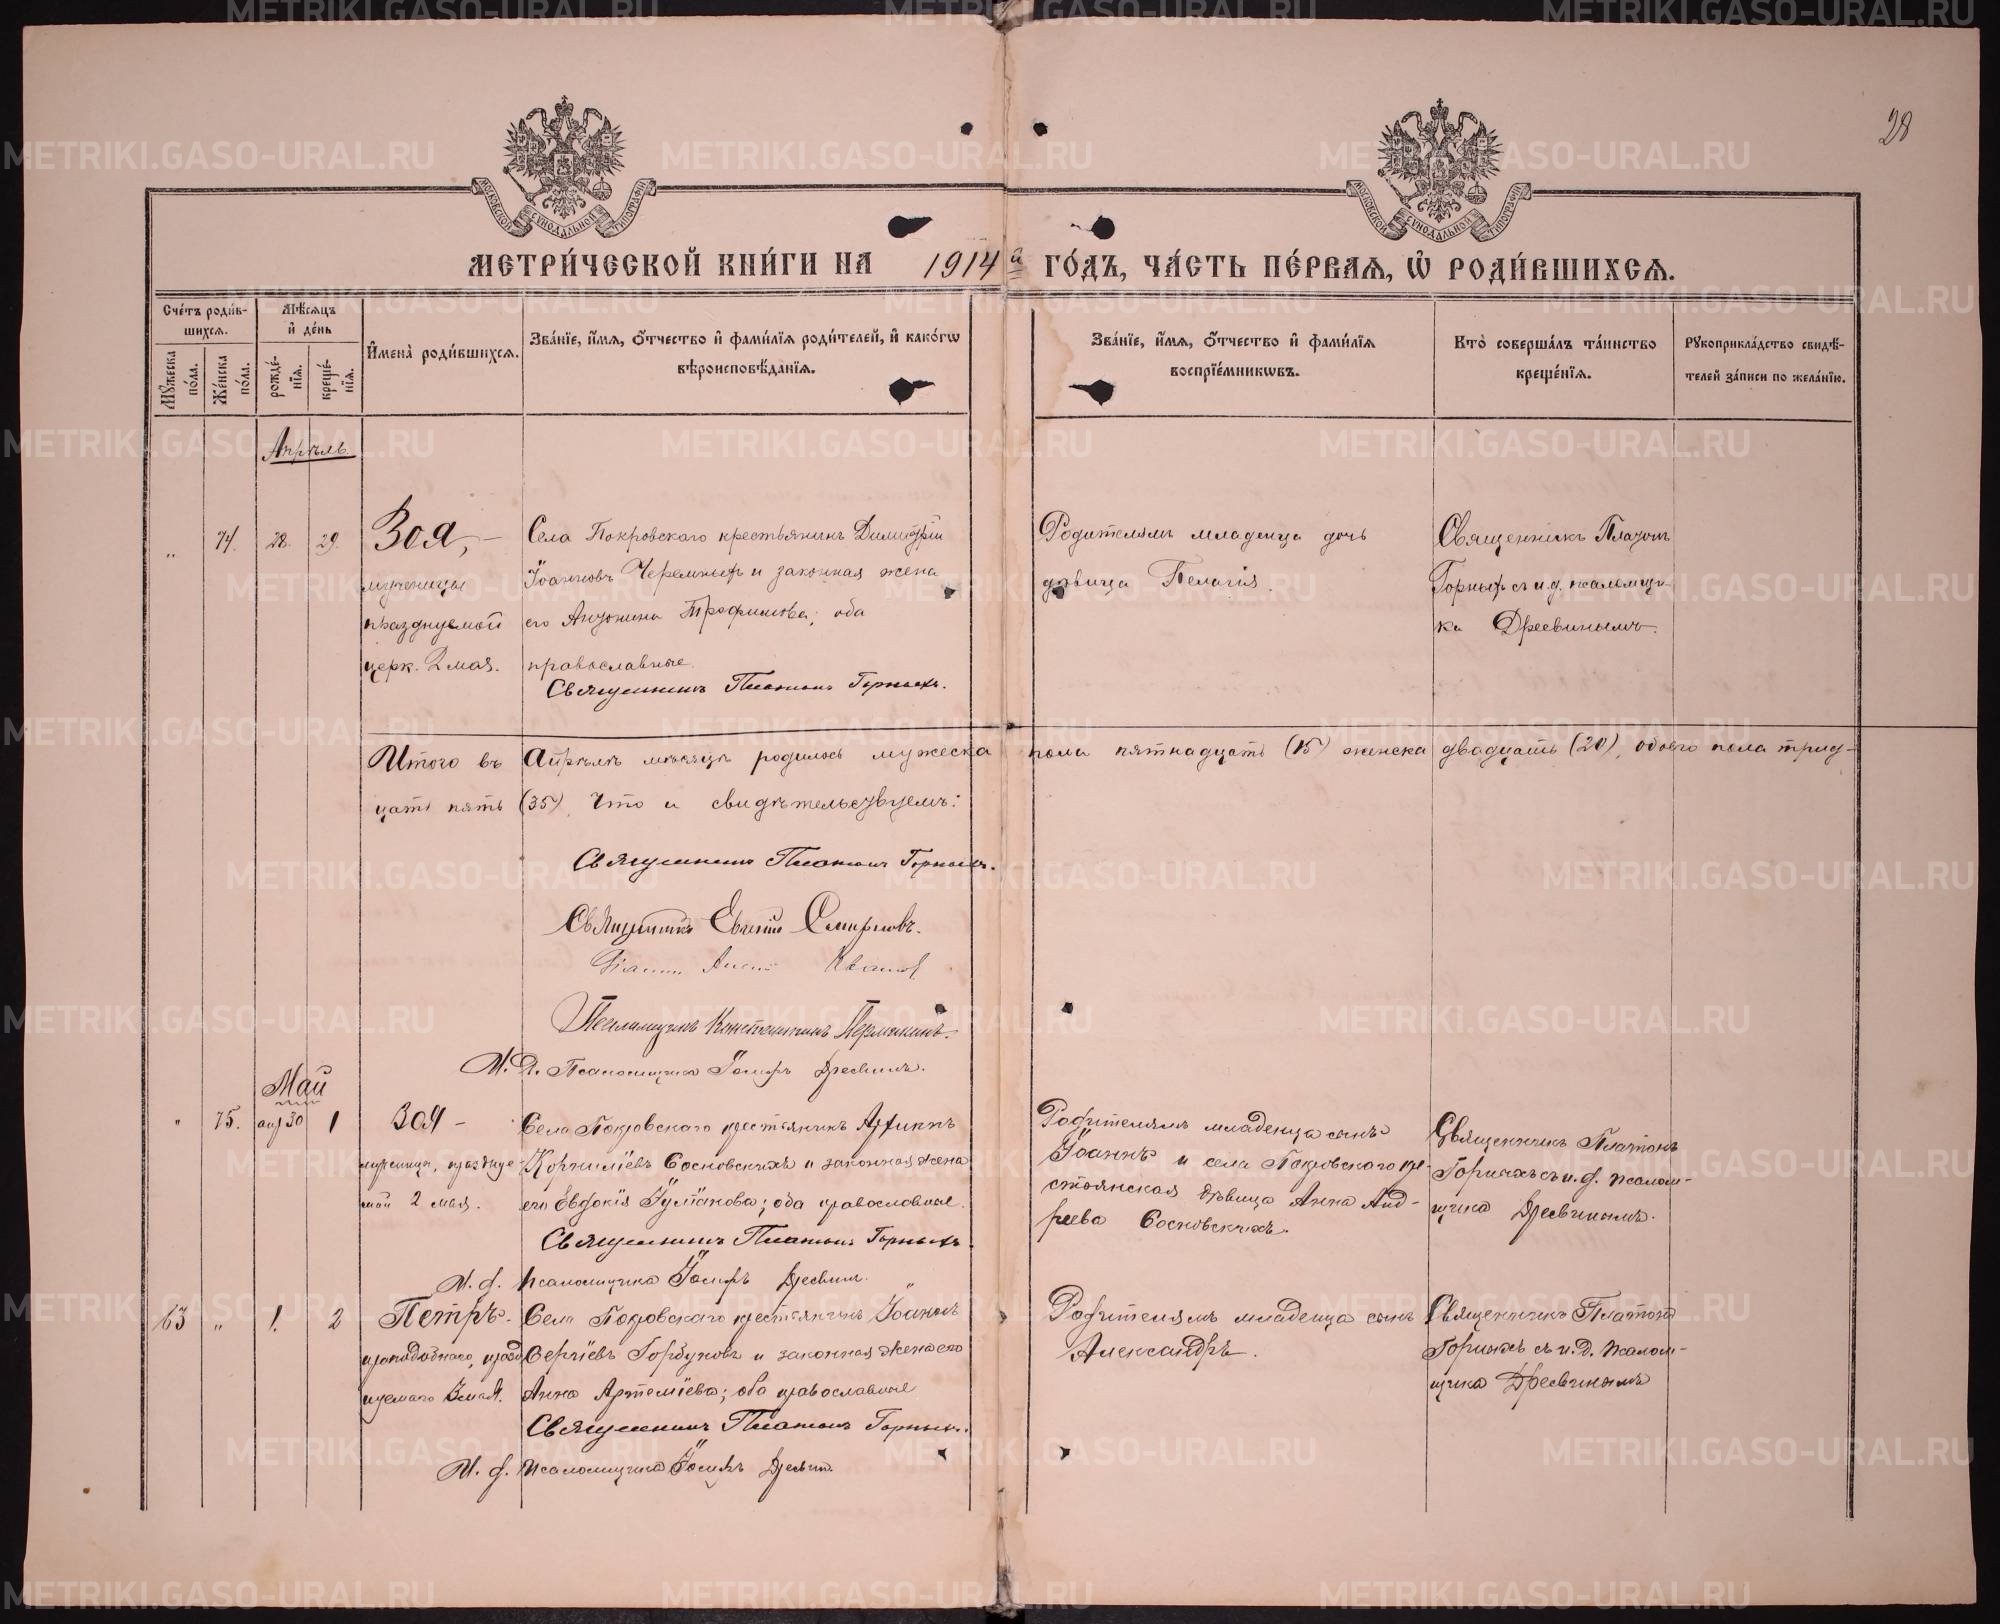 28
МЕТРИ́ЧЕСКОЙ КНИ́ГИ НА 1914 й ГО́ДЪ, ЧА́СТЬ ПЕ́РВАѦ, Ѿ РОДИ́ВШИХСѦ.
МОСКОВСКОЙ СѴНОДАЛЬНОЙ ТИПОГРАФІИ
МОСКОВСКОЙ СѴНОДАЛЬНОЙ ТИПОГРАФІИ
Сче́тъ роди́в-
шихсѧ.
Мꙋжеска по́ла.
Же́нска по́ла.
Мѣ́сѧцъ
и҆ де́нь
рожде́-
нїѧ.
креще́-
нїѧ.
И҆мена̀ роди́вшихсѧ.
Зва́нїе, и҆́мѧ, ѻ҆́тчество и҆ фами́лїѧ роди́телей, и҆ како́гѡ
вѣроисповѣ́данїѧ.
Зва́нїе, и҆́мѧ, ѻ҆́тчество и҆ фами́лїѧ
воспрїе́мникѡвъ.
Кто̀ соверша́лъ та́инство
креще́нїѧ.
Рꙋкоприкла́дство свидѣ́-
телей за́писи по жела́нїю.
Апрѣль
„ 74. 28. 29. Зоя, –
мученицы
празднуемой
церк. 2 мая.
Села Покровскаго крестьянинъ Димитрій
Іоанновъ Черемныхъ и законная жена
его Антонина Трофимова; оба
православные.
Священникъ Платонъ Горныхъ.
Родителямъ младенца дочь
дѣвица Пелагія.
Священникъ Платонъ
Горныхъ съ и.д. псаломщи-
ка Дресвинымъ.
Итого въ Апрѣлѣ мѣсяцѣ родилось мужеска пола пятнадцать (15) женска двадцать (20), обоего пола трид-
цать пять (35). Что и свидѣтельствуемъ:
Священникъ Платонъ Горныхъ.
Священникъ Евгеній Смирновъ.
Псаломщикъ Константинъ Пермякинъ.
И.д. Псаломщика Іосифъ Дресвинъ.
Май
„ 75. апр 30 1 Зоя –
мученица, праздуе-
мой 2 мая.
Села Покровскаго крестьянинъ
Корнилiевъ Сосновскихъ и законная жена
его Евдокія Іуліанова; оба православные.
Священникъ Платонъ Горныхъ.
И.д. псаломщика Іосифъ Дресвин.
Родителямъ младенца сынъ
Іоаннъ и села Покровскаго кре-
стьянская дѣвица Анна Анд-
реева Сосновскихъ.
Священникъ Платонъ
Горныхъ съ и.д. псалом-
щика Дресвинымъ.
63 „ 1. 2 Петръ.
преподобнаго, празд
нуемаго 3 мая.
Села Покровскаго крестьянинъ Іоаннъ
Сергіевъ Горбуновъ и законная жена его
Анна Артеміева; оба православные
Священникъ Платонъ Горныхъ.
И.д. псаломщика Іосифъ Дресвин.
Родителямъ младенца сынъ
Александръ.
Священникъ Платонъ
Горныхъ съ и.д. псалом-
щика Дресвинымъ
METRIKI.GASO-URAL.RU